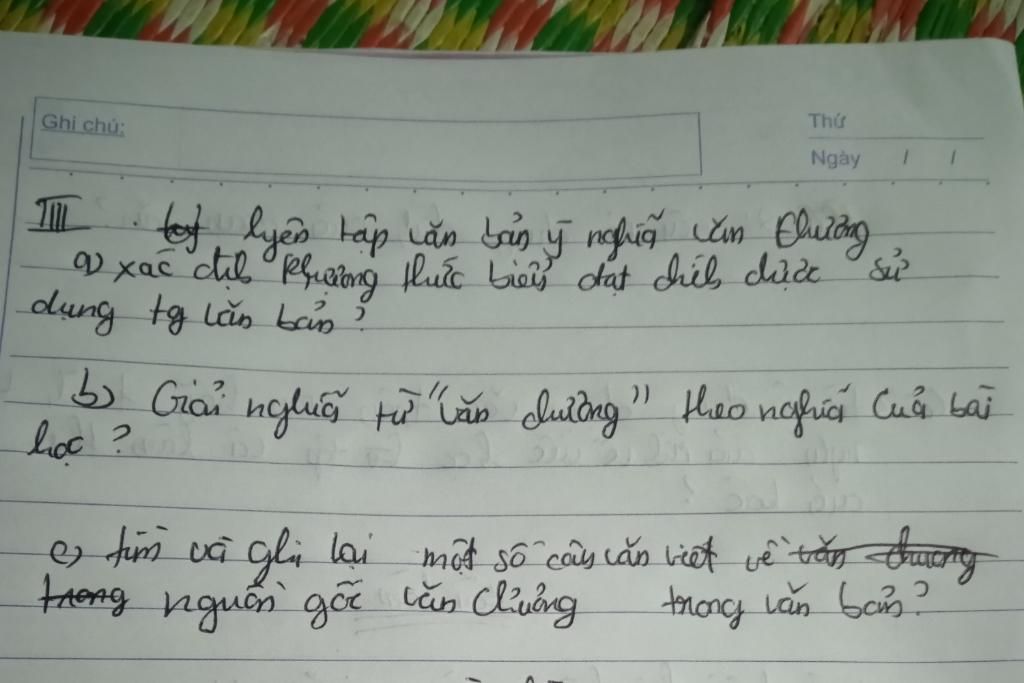 Ghi chú:
Thứ
Ngày / /
III. luyện tập văn bản ý nghĩa văn chương
a) xác định phương thức biểu đạt chính được sử
dụng tg văn bản?
b) Giải nghĩa từ "văn chương" theo nghĩa của bài
học?
c) tìm và ghi lại một số câu văn viết về văn chương
trong nguồn gốc văn chương trong văn bản?